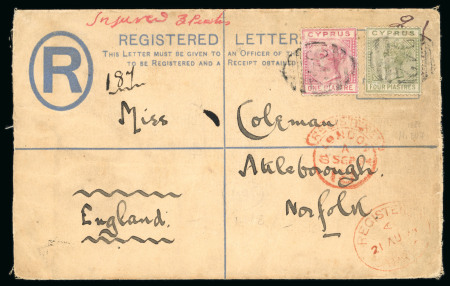 Insured 3 Piastres
REGISTERED LETTER
THIS LETTER MUST BE GIVEN TO AN OFFICER OF
TO BE REGISTERED AND A RECEIPT OBTAINED
R
CYPRUS
ONE PIASTRE
CYPRUS
FOUR PIASTRES
187
Miss Coleman
Attleborough
Norfolk
England
REGISTERED
21 AU